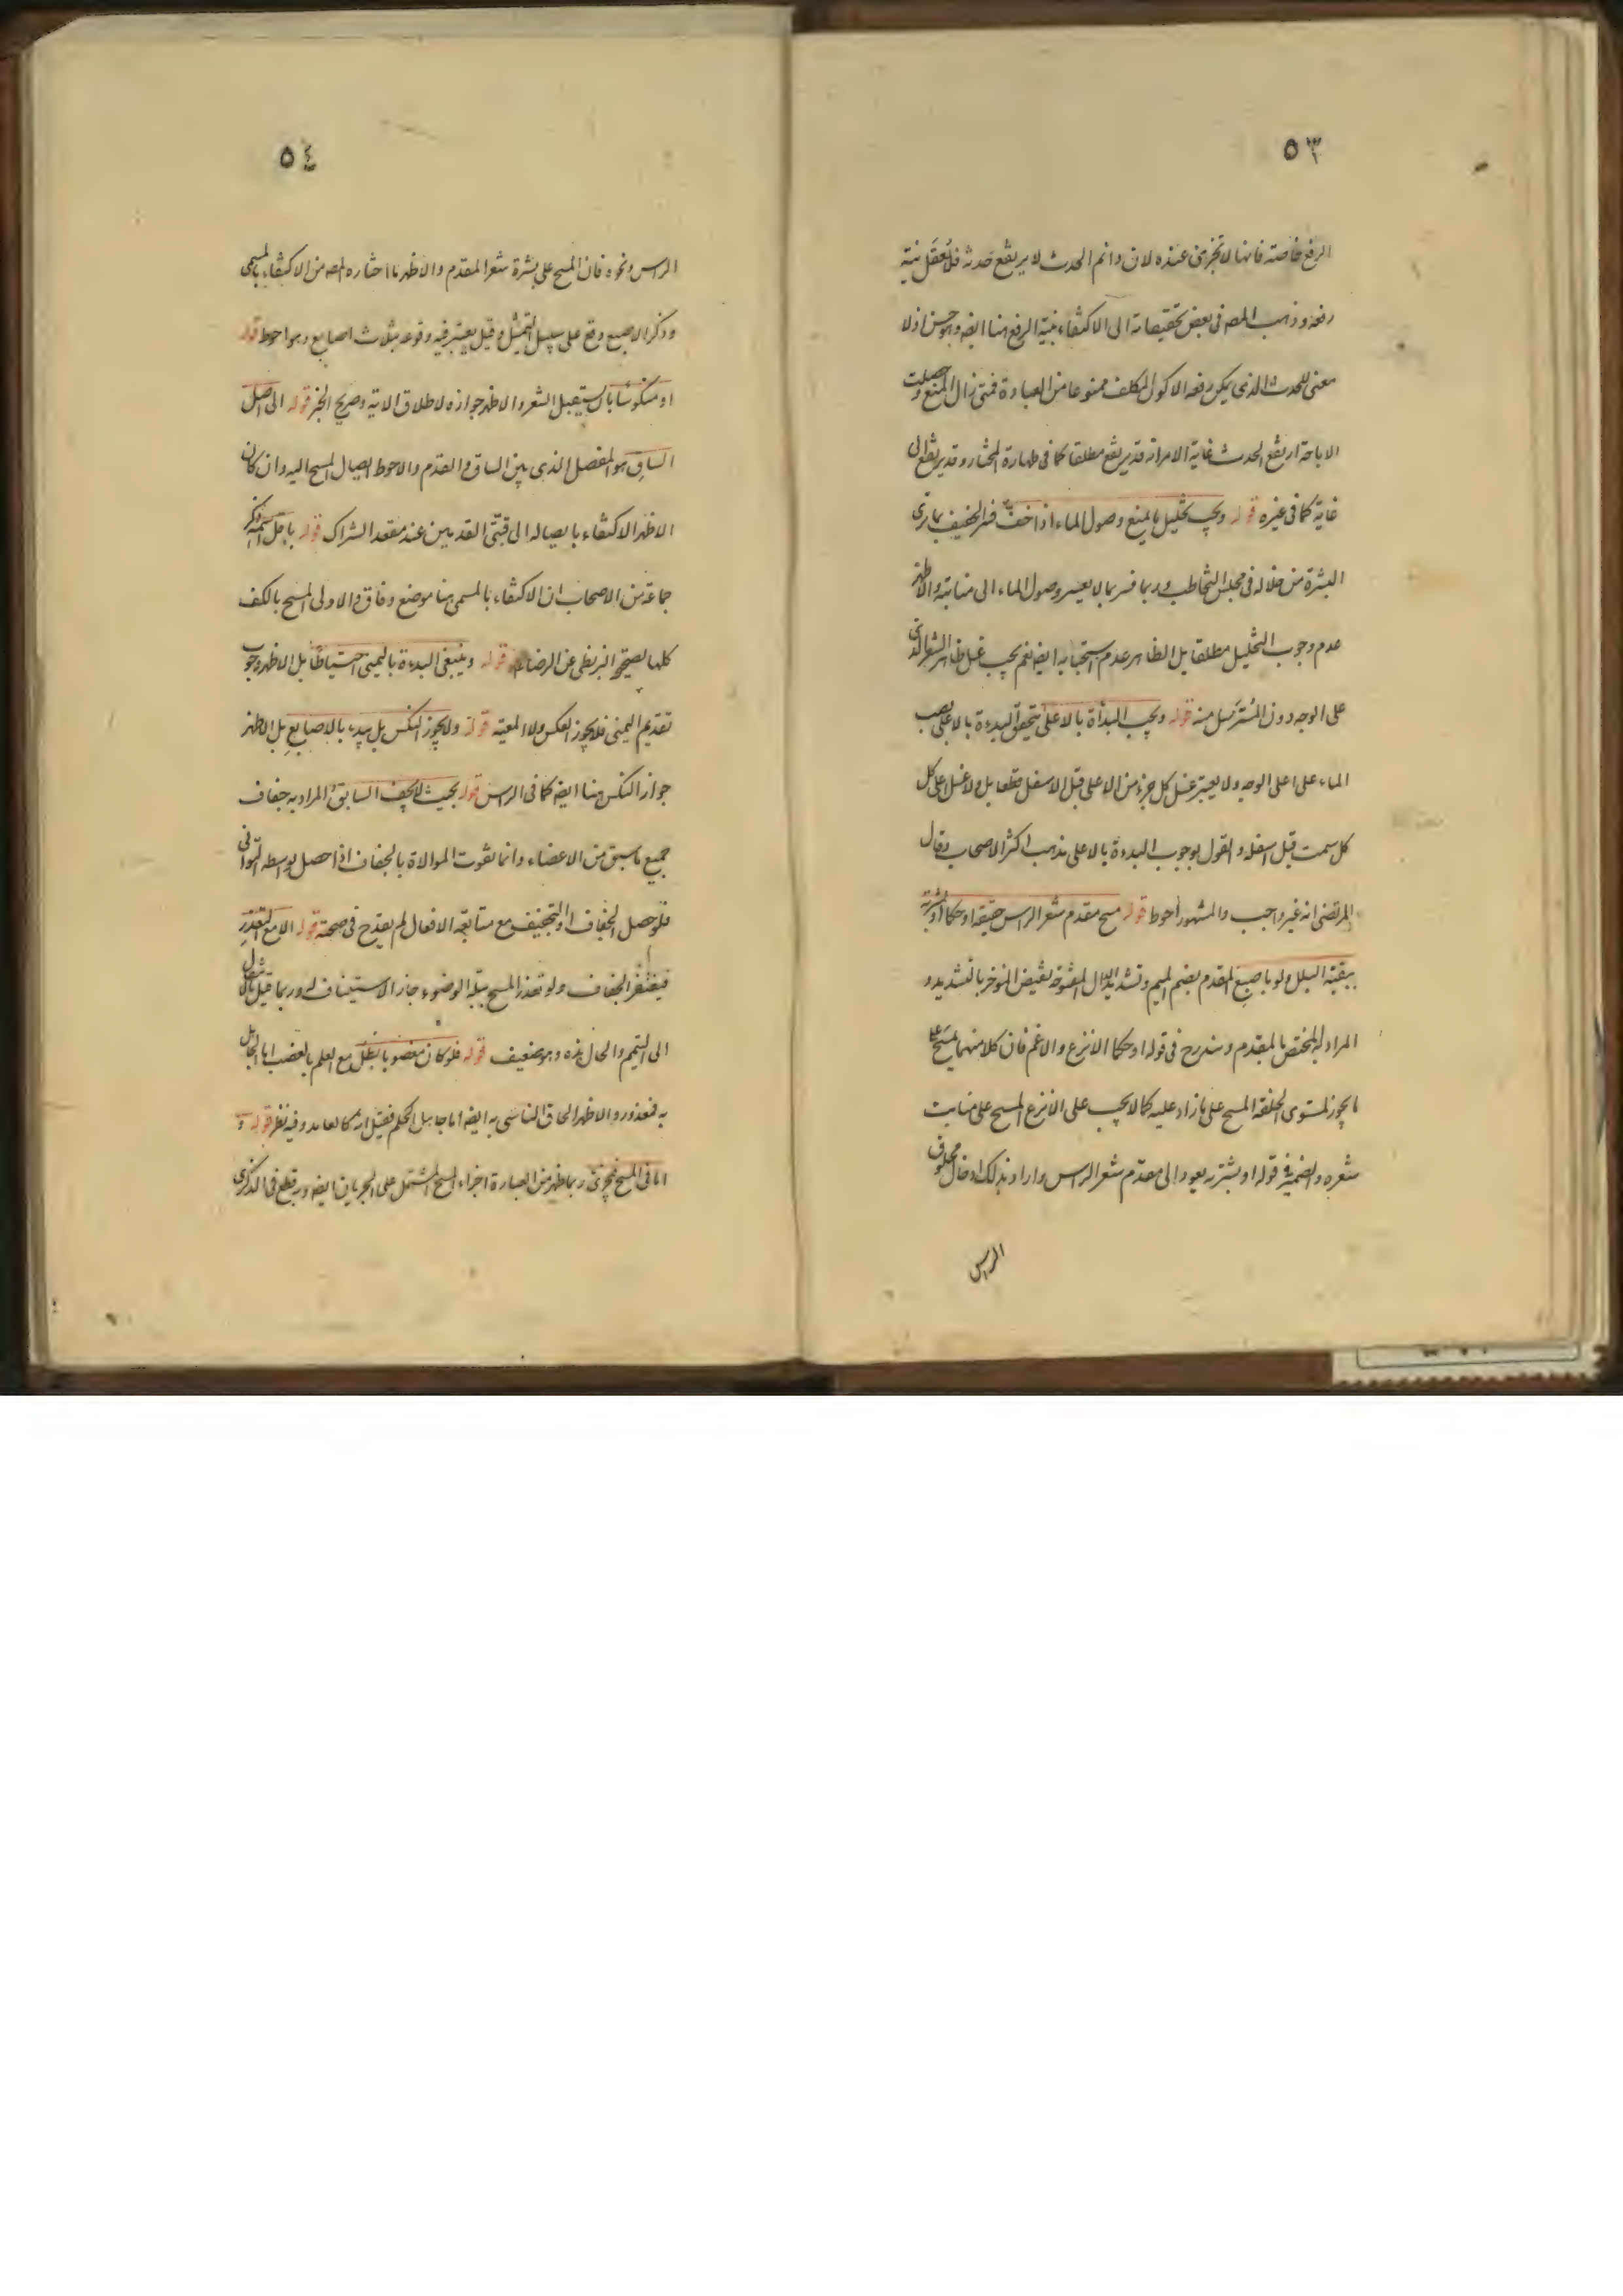 ٥٣
الرفع خاصة فانها لا تجزئ عنده لان دائم الحدث لا يرتفع حدثه فلا يعقل نية
رفعه وذهب المصـ فى بعض تحقيقاته الى الاكتفاء بنية الرفع هنا ايضه وهو حسن اذ لا
معنى للحدث الذى يمكن رفعه الا كون المكلف ممنوعا من العبادة فمتى زال المنع وحصلت
الاباحة ارتفع الحدث غاية الامر انه قد يرتفع مطلقا كما فى طهارة المختار وقد يرتفع الى
غاية كما فى غيره قوله ويجب تخليل ما يمنع وصول الماء اذا خف فسر الخفيف بما ترى
البشرة من خلاله فى مجلس التخاطب وربما فسر بما لا يعسر وصول الماء الى منابته والاظهر
عدم وجوب التخليل مطلقا بل الظاهر عدم استحبابه ايضه نعم يجب غسل ظاهر الشعر الذى
على الوجه دون المسترسل منه قوله ويجب البدأة بالاعلى يتحقق البدءة بالاعلى بصب
الماء على اعلى الوجه ولا يعتبر غسل كل جزء من الاعلى قبل الاسفل قطعا بل ولا غسل اعلى كل
كل سمت قبل اسفله والقول بوجوب البدءة بالاعلى مذهب اكثر الاصحاب وقال
المرتضى انه غير واجب والمشهور احوط قوله مسح مقدم شعر الراس حقيقة او حكما او بشرته
ببقية البلل ولو باصبع المقدم بضم الميم وتشديد الدال المفتوحة نقيض المؤخر بالتشديد و
المراد به المختص بالمقدم ويندرج فى قوله او حكما الانزع والاغم فان كلا منهما يمسح على
ما يجوز لمستوى الخلقة المسح على ما زاد عليه كما لا يجب على الانزع المسح على منابت
شعره والضمير فى قوله او بشرته يعود الى مقدم شعر الراس واراد بذلك ادخال محلوق
الراس
٥٤
الراس ونحوه فان المسح على بشرة شعر المقدم والاظهر ما اختاره المصـ من الاكتفاء بالمسمى
وذكر الاصبع وقع على سبيل التمثيل وقيل يعتبر فيه وقوعه بثلاث اصابع وهو احوط قوله
او منكوسا باستقبال الشعر والاظهر جوازه لاطلاق الاية وصريح الخبر قوله الى اصل
الساق هو المفصل الذى بين الساق والقدم والاحوط ايصال المسح اليه وان كان
الاظهر الاكتفاء بايصاله الى قبتى القدمين عند معقد الشراك قوله باقل اسمه ذكر
جماعة من الاصحاب ان الاكتفاء بالمسمى هنا موضع وفاق والاولى المسح بالكف
كلها لصحيح البزنطى عن الرضاء قوله وينبغى البدءة باليمنى احتياطا بل الاظهر وجوب
تقديم اليمنى فلا يجوز العكس ولا المعية قوله ولا يجوز النكس بل يبدء بالاصابع بل الاظهر
جواز النكس هنا ايضه كما فى الراس قوله بحيث لا يجف السابق المراد به جفاف
جميع ما سبق من الاعضاء وانما تفوت الموالاة بالجفاف اذا حصل بواسطه التوانى
فلو حصل الجفاف او التجفيف مع متابعة الافعال لم يقدح فى صحته قوله الا مع التعذر
فيغتفر الجفاف ولو تعذر المسح ببلة الوضوء جاز الاستيناف له وربما قيل بالانتقال
الى التيمم والحال هذه وهو ضعيف قوله فلو كان مغصوبا بطل مع العلم بالغصب اما الجاهل
به فمعذور والاظهر الحاق الناسى به ايضه اما جاهل الحكم فقيل انه كالعامد وفيه نظر قوله و
اما فى المسح فيجزئ ربما ظهر من العبارة اجزاء المسح المشتمل على الجريان ايضه وقطع فى الذكرى